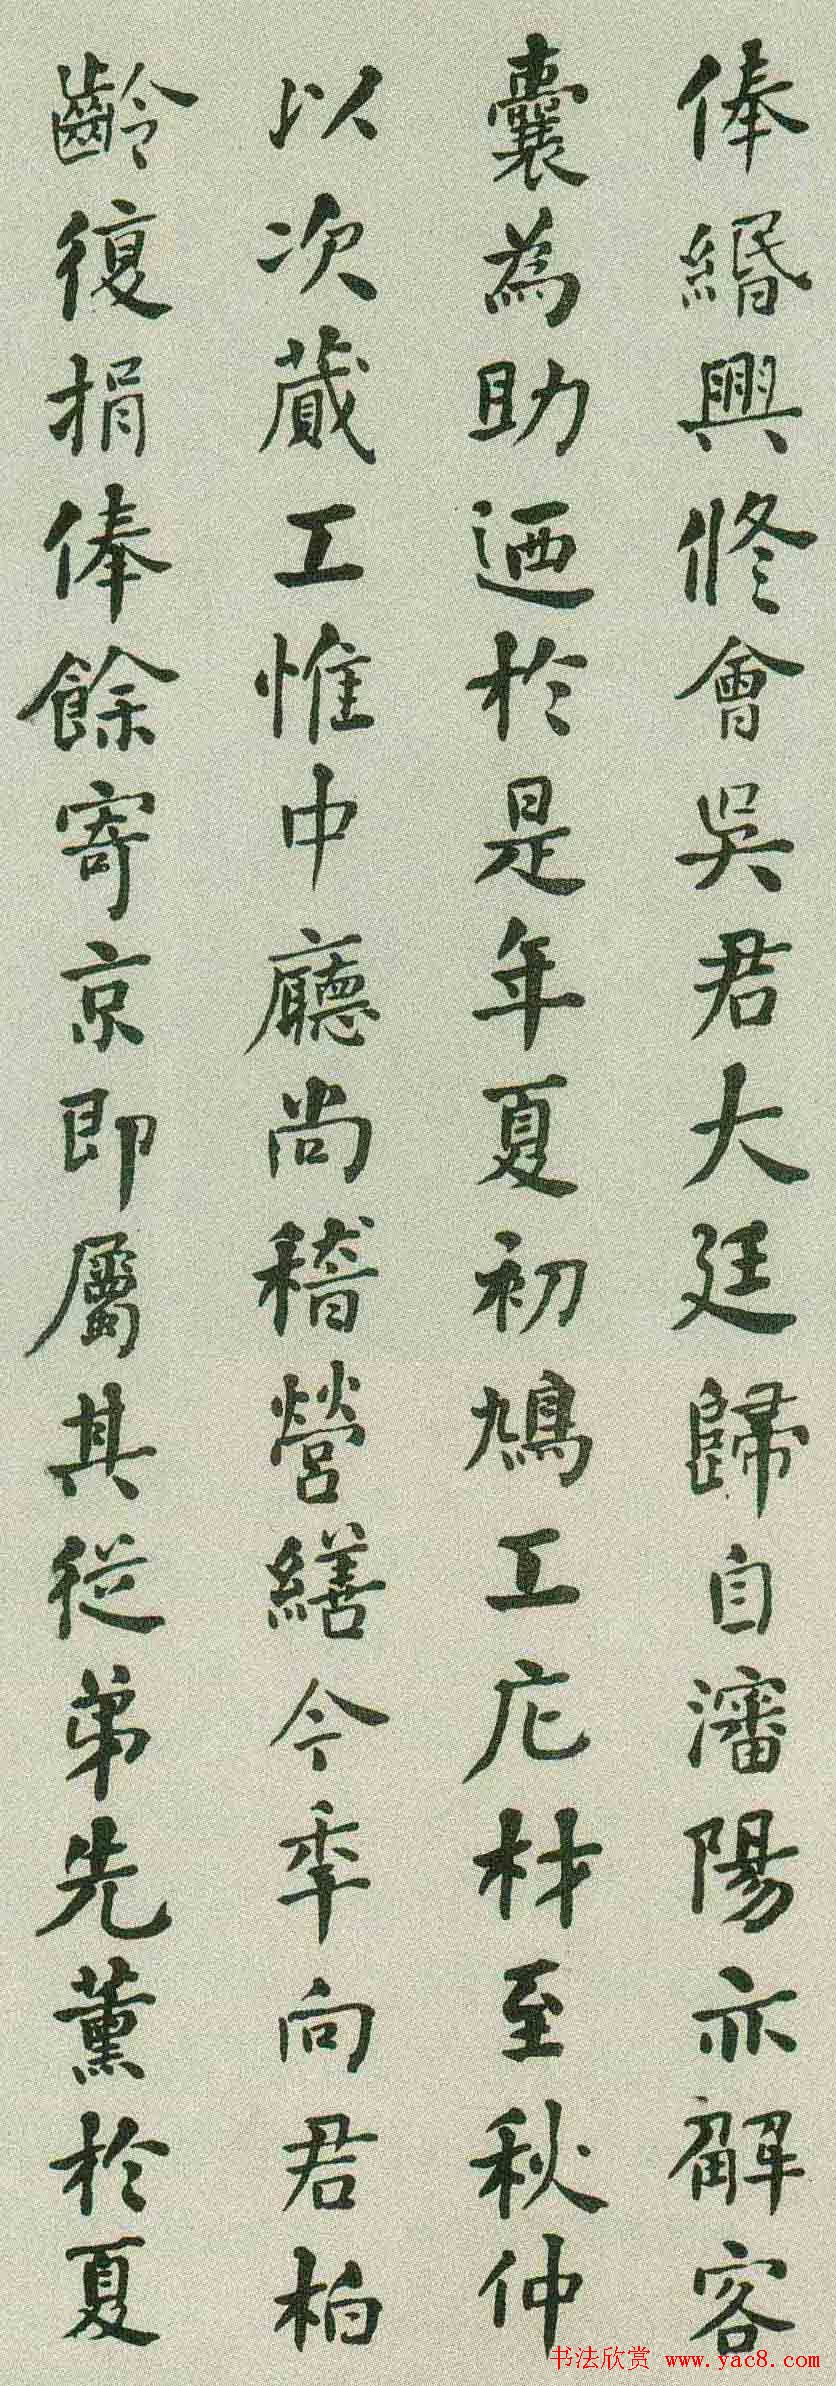 俸緡興修會吳君大廷歸自瀋陽亦解客
囊為助迺於是年夏初鳩工庀材至秋仲
以次蕆工惟中廳尚稽營繕今季向君柏
齡復捐俸餘寄京即屬其從弟先薰於夏
书法欣赏 www.yac8.com